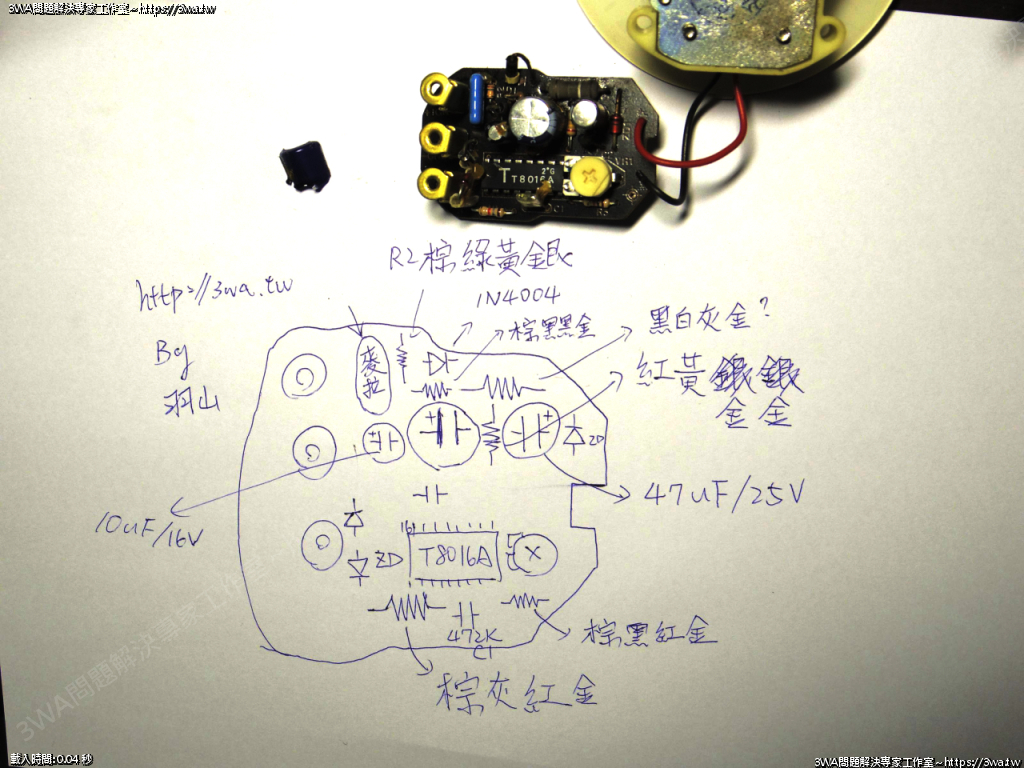 3WA問題解決專家工作室~https://3wa.tw
T T8016A
2*G
R2棕綠黃銀
http://3wa.tw
1N4004
棕黑黑金
黑白灰金?
By
羽山
麥拉
紅黃銀銀
金金
ZD
47uF/25V
10uF/16V
16
ZD
T8016A
472K
C1
棕黑紅金
棕灰紅金
3WA問題解決專家工作室
載入時間:0.04 秒
3WA問題解決專家工作室~https://3wa.tw